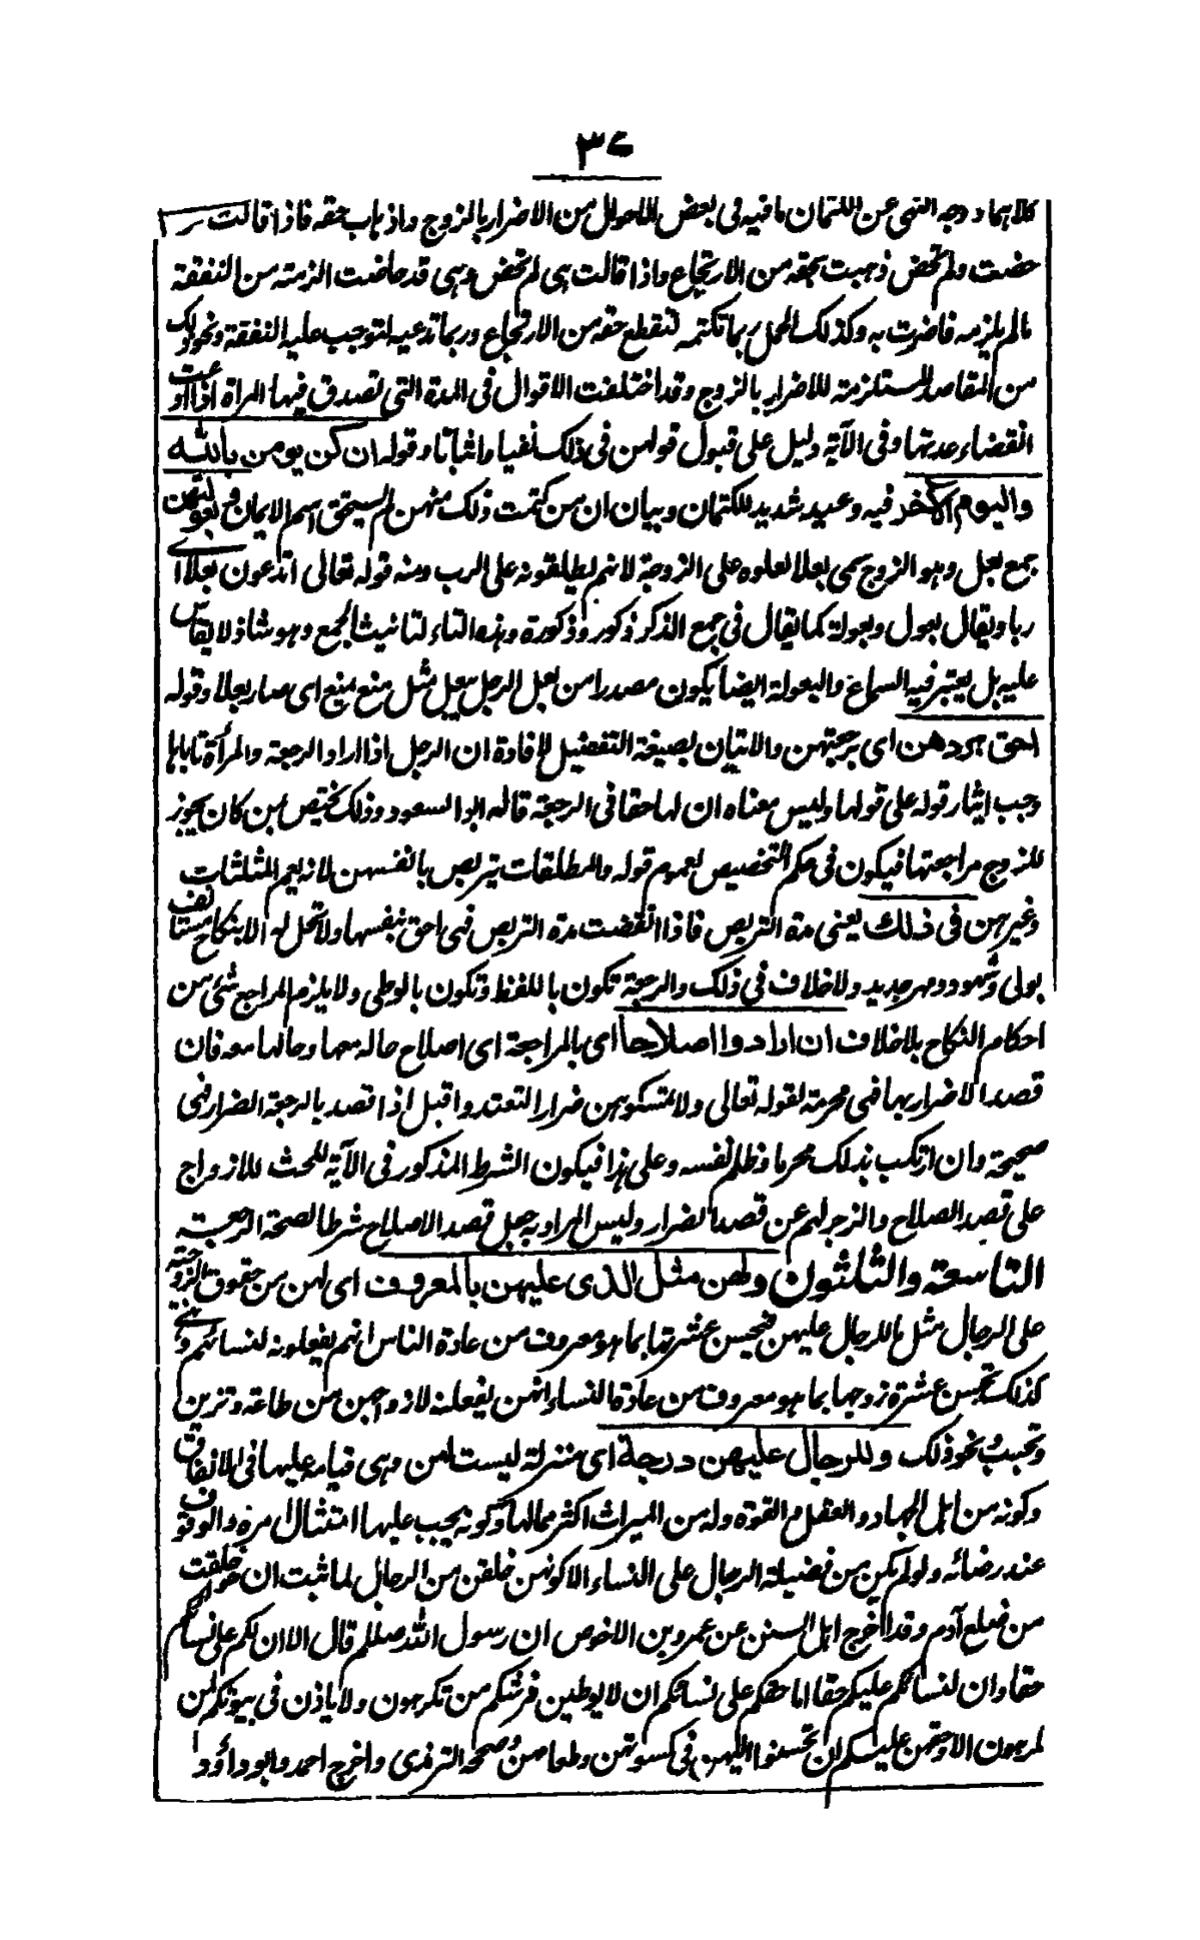 ٣٧
كلاهما ووجه النهي عن الكتمان ما فيه في بعض الاحوال من الاضرار بالزوج واذهاب حقه فاذا قالت
حضت ولم تحض ذهبت بحقه من الارتجاع واذا قالت هي لم تحض وهي قد حاضت الزمته من النفقة
مالم يلزمه فاضرت به وكذلك الحمل ربما تكتمه لتقطع حقه من الارتجاع وربما تدعيه لتوجب عليه النفقة ونحو ذلك
من المقاصد المستلزمة للاضرار بالزوج وقد اختلفت الاقوال في المدة التي تصدق فيها المرأة اذا ادعت
انقضاء عدتها وفي الآية دليل على قبول قولهن في ذلك نفيا واثباتا وقوله ان كن يومن بالله
واليوم الآخر فيه وعيد شديد للكتمان وبيان ان من كتمت ذلك منهن لم يستحق اسم الايمان وبعولتهن
جمع بعل وهو الزوج سمي بعلا لعلوه على الزوجة لانهم يطلقونه على الرب ومنه قوله تعالى اتدعون بعلا اي
ربا ويقال بعول وبعولة كما يقال في جمع الذكر ذكور وذكورة وهذه التاء لتانيث الجمع وهو شاذ لا يقاس
عليه بل يعتبر فيه السماع والبعولة ايضا يكون مصدرا من بعل الرجل يبعل مثل منع يمنع اي صار بعلا وقوله
احق بردهن اي برجعتهن والاتيان بصيغة التفضيل لافادة ان الرجل اذا اراد الرجعة والمرأة تاباها
وجب ايثار قوله على قولها وليس معناه ان لها حقا في الرجعة قاله ابو السعود وذلك يختص بمن كان يجوز
للزوج مراجعتها فيكون في حكم التخصيص لعموم قوله والمطلقات يتربصن بانفسهن لانه يعم المثلثات
وغيرهن في ذلك يعني مدة التربص فاذا انقضت مدة التربص فهي احق بنفسها ولا تحل له الا بنكاح مستانف
بولي وشهود ومهر جديد ولا خلاف في ذلك والرجعة تكون باللفظ وتكون بالوطي ولا يلزم المراجع شئ من
احكام النكاح بلا خلاف ان ارادوا اصلاحا اي بالمراجعة اي اصلاح حاله معها وحالها معه فان
قصد الاضرار بها فهي محرمة لقوله تعالى ولا تمسكوهن ضرارا لتعتدوا قيل اذا قصد بالرجعة الضرار فهي
صحيحة وان ارتكب بذلك محرما وظلم نفسه وعلى هذا فيكون الشرط المذكور في الآية للحث للازواج
على قصد الصلاح والزجر لهم عن قصد الضرار وليس المراد به جعل قصد الاصلاح شرطا لصحة الرجعة
التاسعة والثلثون ولهن مثل الذي عليهن بالمعروف اي لهن من حقوق الزوجية
على الرجال مثل ما للرجال عليهن فيحسن عشرتها بما هو معروف من عادة الناس انهم يفعلونه لنسائهم وهي
كذلك تحسن عشرة زوجها بما هو معروف من عادة النساء انهن يفعلنه لازواجهن من طاعة وتزين
وتحبب ونحو ذلك وللرجال عليهن درجة اي منزلة ليست لهن وهي قيامه عليها في الانفاق
وكونه من اهل الجهاد والعقل والقوة وله من الميراث اكثر مما لها وكونه يجب عليها امتثال امره والوقوف
عند رضائه ولو لم يكن من فضيلة الرجال على النساء الا كونهن خلقن من الرجال لما ثبت ان حواء خلقت
من ضلع آدم وقد اخرج اهل السنن عن عمرو بن الاحوص ان رسول الله صلعم قال الا ان لكم على نسائكم
حقا وان لنسائكم عليكم حقا اما حقكم على نسائكم ان لا يوطين فرشكم من تكرهون ولا ياذن في بيوتكم لمن
تكرهون الا وحقهن عليكم ان تحسنوا اليهن في كسوتهن وطعامهن وصححه الترمذي واخرج احمد وابو داؤد